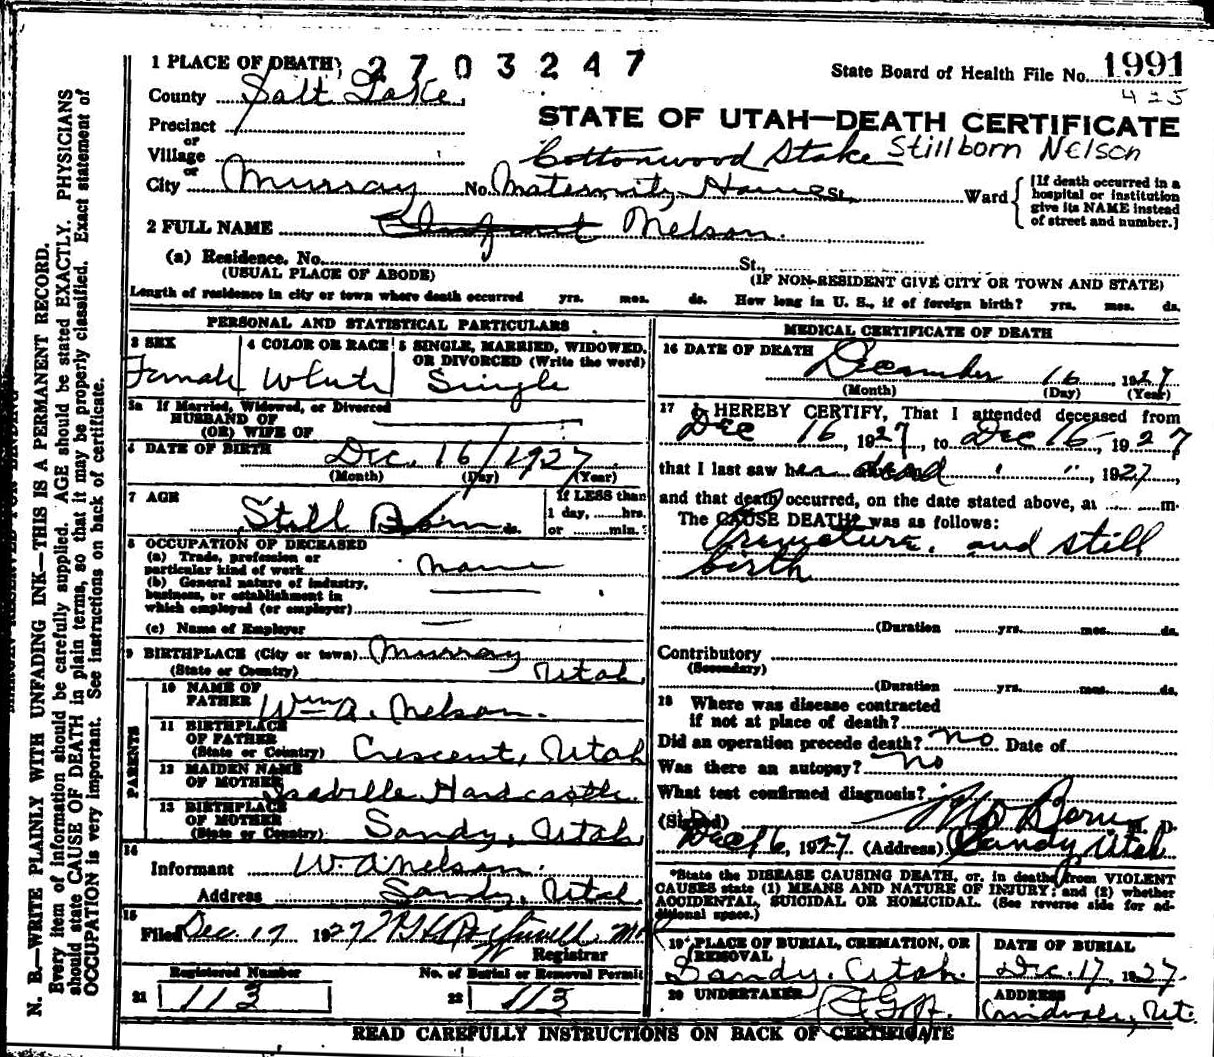 1 PLACE OF DEATH 2703247
State Board of Health File No. 1991
425
County Salt Lake
STATE OF UTAH—DEATH CERTIFICATE
Precinct
or
Village
Cottonwood Stake Stillborn Nelson
or
City Murray No. Maternity Home St. Ward
[If death occurred in a hospital or institution give its NAME instead of street and number.]
2 FULL NAME Nelson.
(a) Residence. No. St.,
(USUAL PLACE OF ABODE) (IF NON-RESIDENT GIVE CITY OR TOWN AND STATE)
Length of residence in city or town where death occurred yrs. mos. ds. How long in U. S., if of foreign birth? yrs. mos. ds.
PERSONAL AND STATISTICAL PARTICULARS
3 SEX 4 COLOR OR RACE 5 SINGLE, MARRIED, WIDOWED,
OR DIVORCED (Write the word)
Female White Single
5a If Married, Widowed, or Divorced
HUSBAND OF
(OR) WIFE OF
6 DATE OF BIRTH Dec. 16/1927
(Month) (Day) (Year)
7 AGE If LESS than
1 day, ......hrs.
Still Born ds. or ......min.?
8 OCCUPATION OF DECEASED
(a) Trade, profession or
particular kind of work None
(b) General nature of industry,
business, or establishment in
which employed (or employer)
(c) Name of Employer
9 BIRTHPLACE (City or town) Murray
(State or Country) Utah
PARENTS
10 NAME OF
FATHER Wm A. Nelson.
11 BIRTHPLACE
OF FATHER
(State or Country) Crescent, Utah
12 MAIDEN NAME
OF MOTHER Isabelle Hardcastle.
13 BIRTHPLACE
OF MOTHER
(State or Country) Sandy, Utah
14
Informant W. A. Nelson.
Address Sandy, Utah.
15
Filed Dec. 17 1927
Registrar
Registered Number No. of Burial or Removal Permit
21 113 22 113
MEDICAL CERTIFICATE OF DEATH
16 DATE OF DEATH December 16, 1927
(Month) (Day) (Year)
17 I HEREBY CERTIFY, That I attended deceased from
Dec 16, 1927, to Dec 16, 1927
that I last saw her dead " ", 1927,
and that death occurred, on the date stated above, at ...... m.
The CAUSE DEATH* was as follows:
Premature, and still
birth
(Duration yrs. mos. ds.
Contributory
(Secondary)
(Duration yrs. mos. ds.
18 Where was disease contracted
if not at place of death?
Did an operation precede death? No Date of
Was there an autopsy? No
What test confirmed diagnosis?
(Signed) M. D.
Dec 16, 1927 (Address) Sandy, Utah
*State the DISEASE CAUSING DEATH, or, in deaths from VIOLENT
CAUSES state (1) MEANS AND NATURE OF INJURY; and (2) whether
ACCIDENTAL, SUICIDAL OR HOMICIDAL. (See reverse side for ad-
ditional space.)
19 PLACE OF BURIAL, CREMATION, OR
REMOVAL DATE OF BURIAL
Sandy. Utah. Dec. 17, 1927.
20 UNDERTAKER ADDRESS
Goff. Midvale, Ut.
READ CAREFULLY INSTRUCTIONS ON BACK OF CERTIFICATE
N. B.—WRITE PLAINLY WITH UNFADING INK—THIS IS A PERMANENT RECORD.
Every item of information should be carefully supplied. AGE should be stated EXACTLY. PHYSICIANS
should state CAUSE OF DEATH in plain terms, so that it may be properly classified. Exact statement of
OCCUPATION is very important. See instructions on back of certificate.